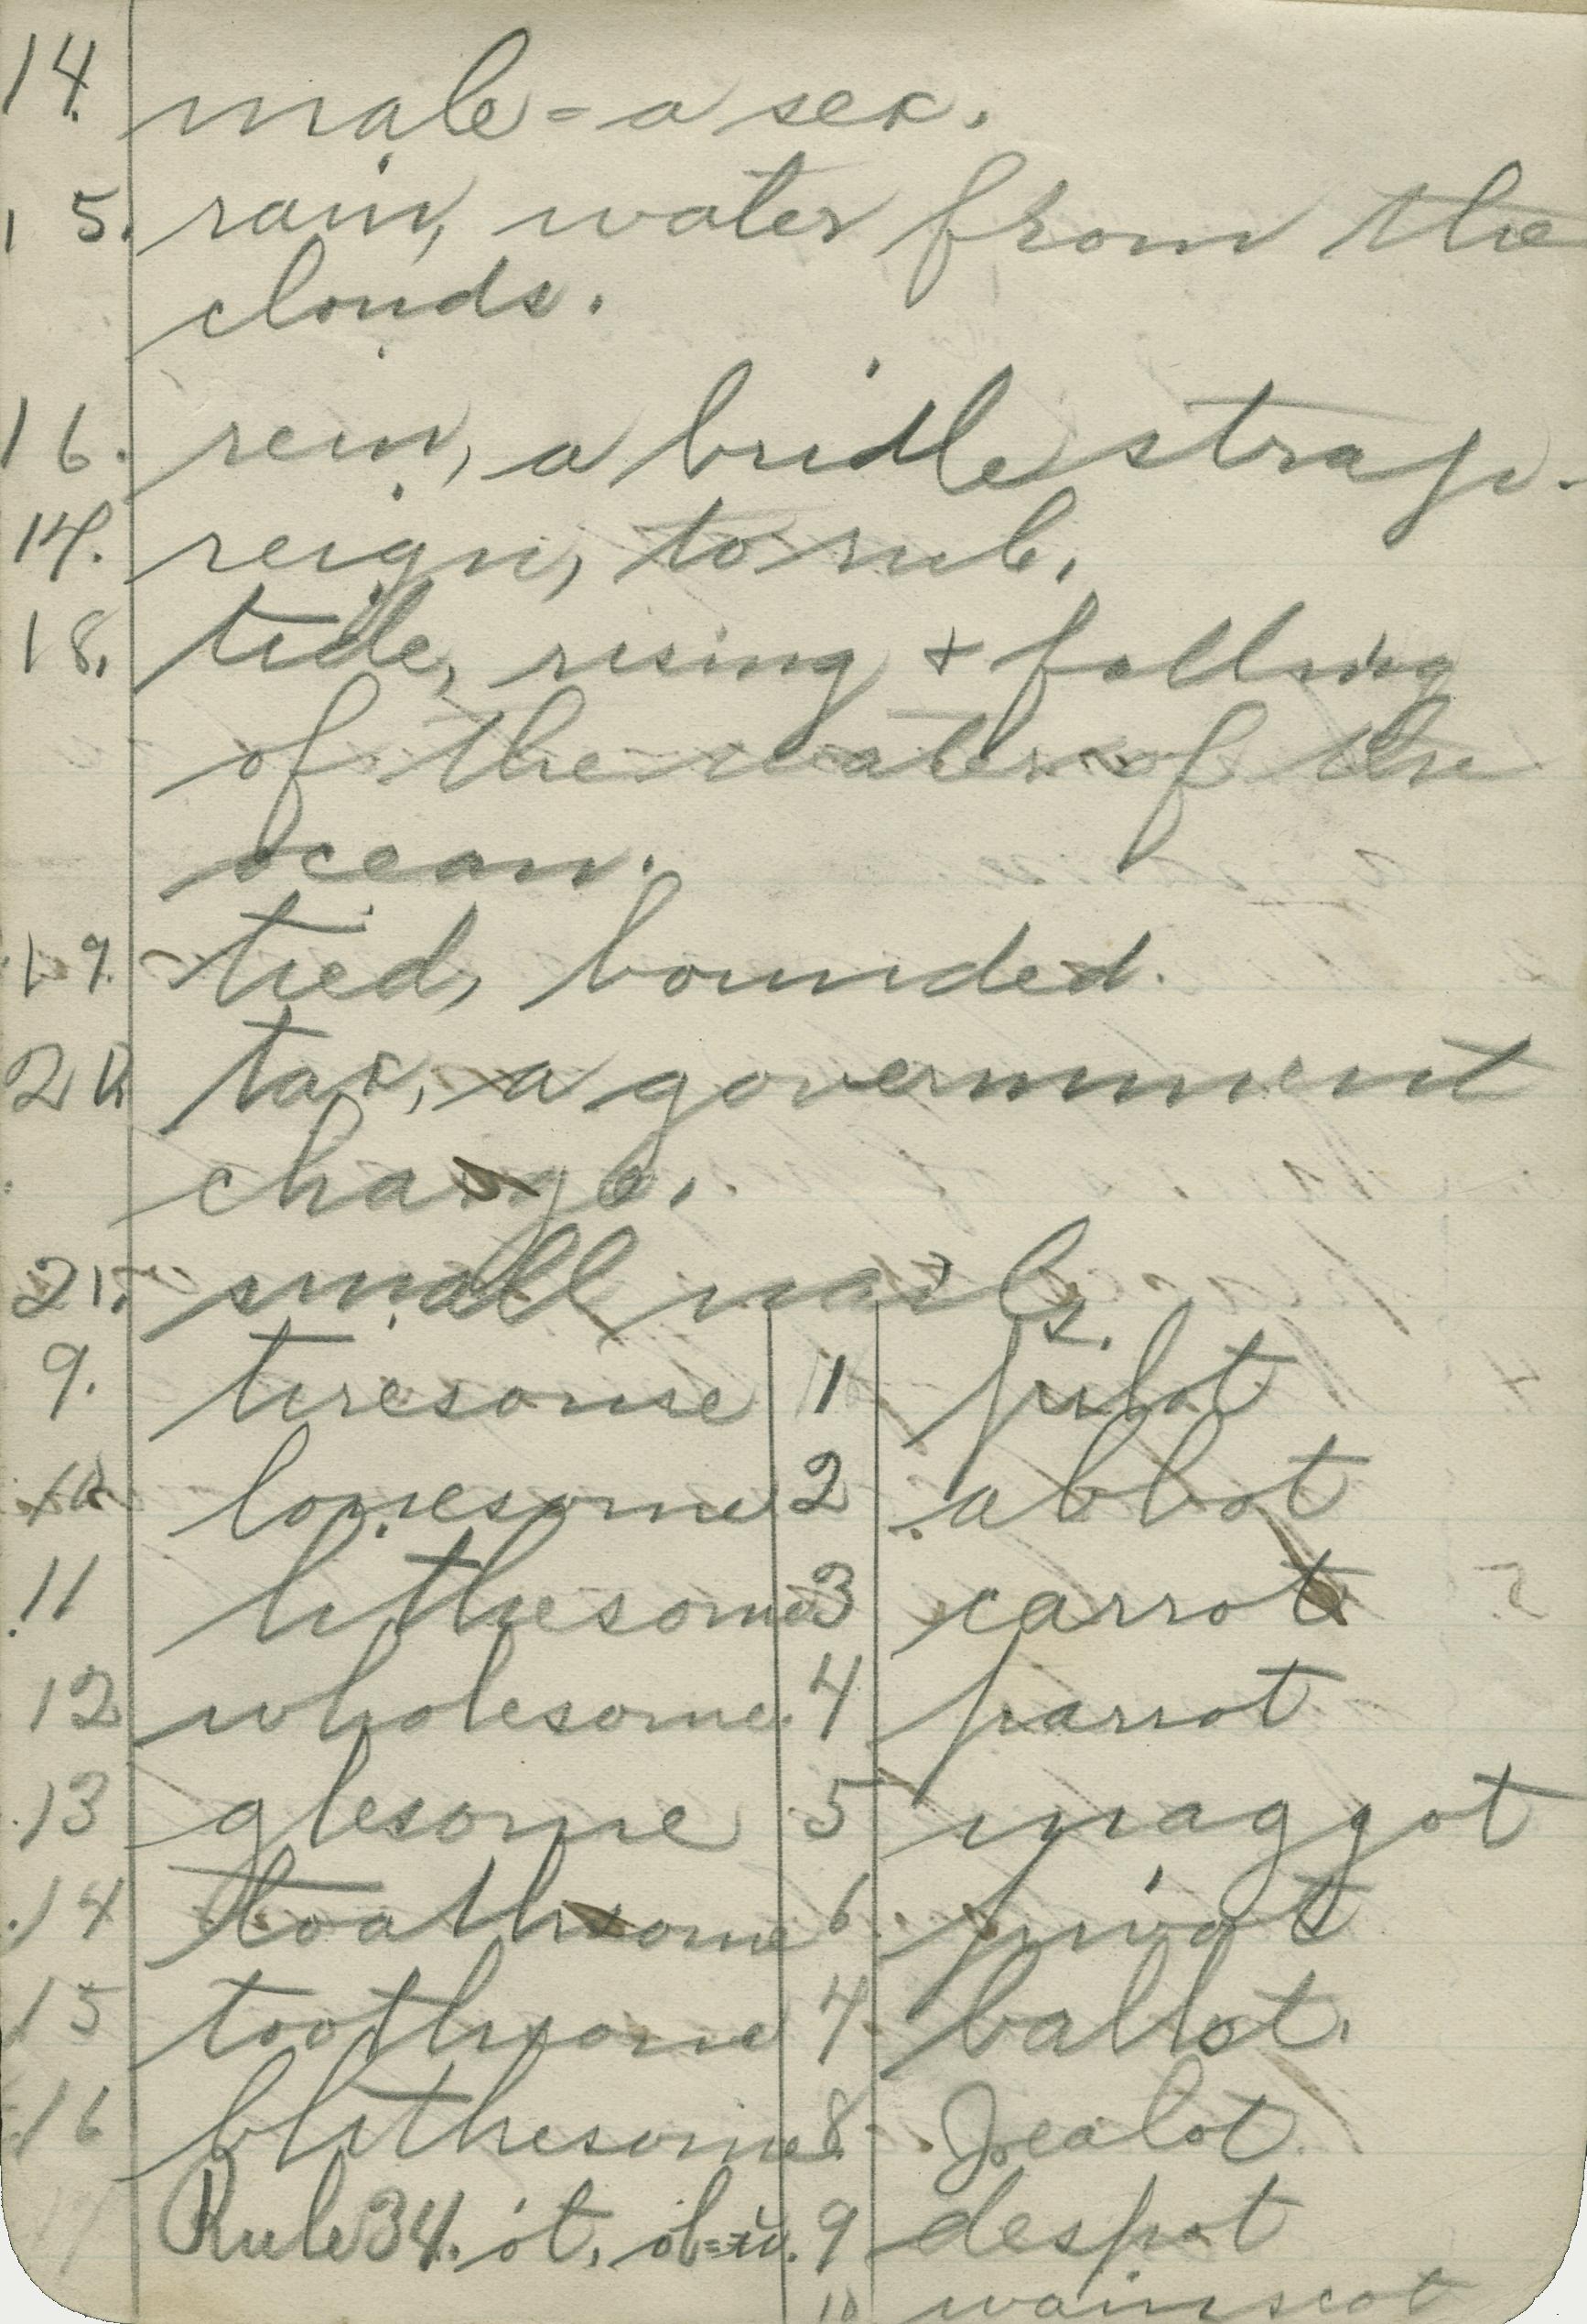 14. male = a sex.
15. rain, water from the
clouds.
16. rein, a bridle strap.
17. reign, to rule.
18. tide, rising + falling
of the water of the
ocean.
19. tied, bounded.
20. tax, a government
charge.
21. small nails.
9. tiresome
10. lonesome
11 lithesome
12 wholesome.
13 glesome
14 loathsome
15 toothsome
16 blithesome
Rule 34. ot,
1 pilot
2 abbot
3 carrot
4 parrot
5 maggot
6. pivot
7. ballot.
8. zealot.
9 despot
10 wainscot